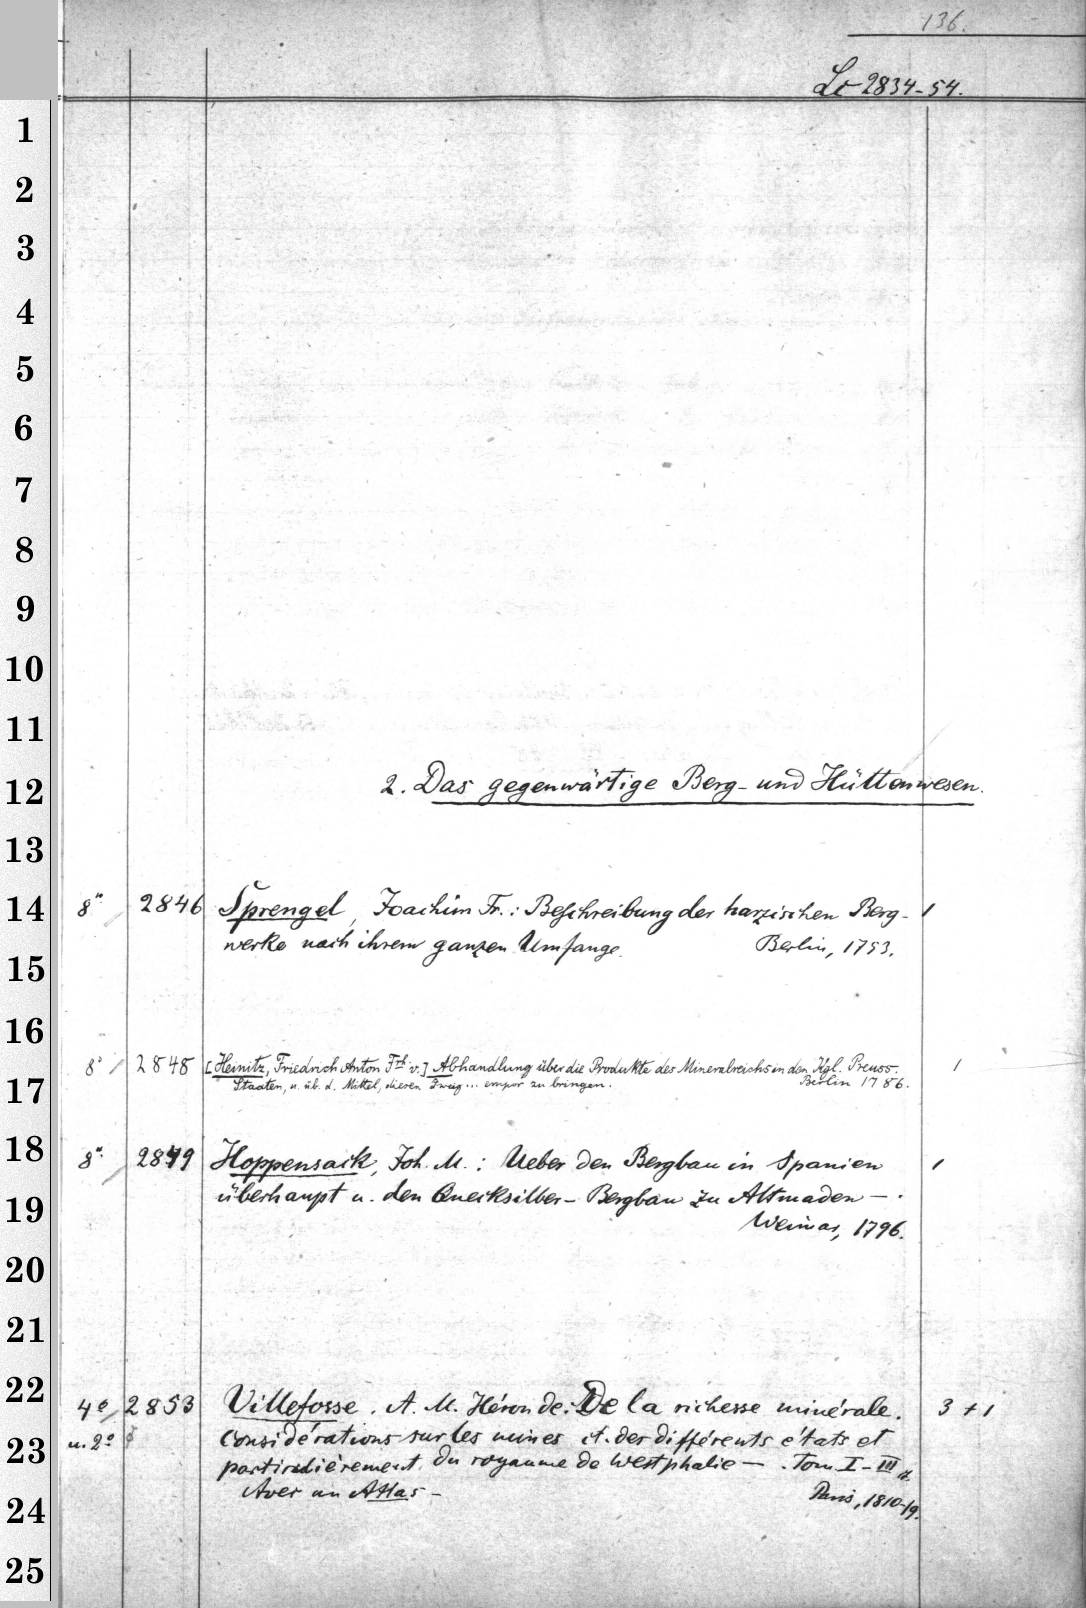 136.
Lo 2834-54.
1
2
3
4
5
6
7
8
9
10
11
12
2. Das gegenwärtige Berg- und Hüttenwesen.
13
14
8° 2846 Sprengel, Joachim Fr.: Beschreibung der harzischen Berg- 1
werke nach ihrem ganzen Umfange. Berlin, 1753.
15
16
8° / 2848 [Heinitz, Friedrich Anton Frh. v.] Abhandlung über die Produkte des Mineralreichs in den Kgl. Preuss. 1
Staaten, u. üb. d. Mittel, diesen Zweig... empor zu bringen. Berlin 1786.
17
18
8° / 2849 Hoppensack, Joh. M.: Ueber den Bergbau in Spanien 1
überhaupt u. den Quecksilber-Bergbau zu Altmaden —.
19
Weimar, 1796.
20
21
22
4° / 2853 Villefosse, A. M. Héron de: De la richesse minérale. 3 + 1
u. 2° Considérations sur les mines et. der différents états et
23
particulièrement du royaume de Westphalie —. Tom I-III
Avec un Atlas - Paris, 1810-19.
24
25